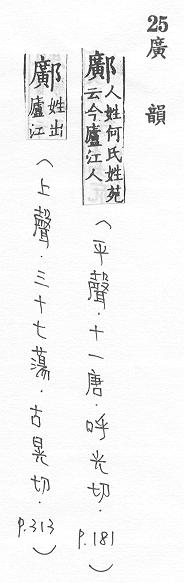 25 廣韻
鄺 人姓何氏姓苑云今廬江人 (平聲．十一唐．呼光切．p.181)
鄺 姓出廬江 (上聲．三十七蕩．古晃切．p.313)